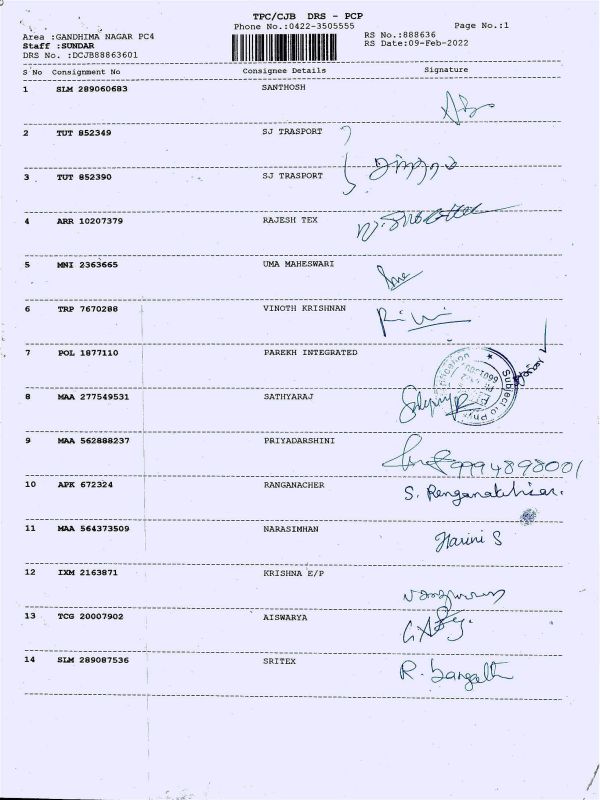 TPC/CJB DRS - PCP
Phone No.:0422-3505555 Page No.:1
Area :GANDHIMA NAGAR PC4 RS No.:888636
Staff :SUNDAR RS Date:09-Feb-2022
DRS No. :DCJB88863601
S No Consignment No Consignee Details Signature
1 SLM 289060683 SANTHOSH
2 TUT 852349 SJ TRASPORT
3 TUT 852390 SJ TRASPORT
4 ARR 10207379 RAJESH TEX
5 MNI 2363665 UMA MAHESWARI
6 TRP 7670288 VINOTH KRISHNAN
7 POL 1877110 PAREKH INTEGRATED
8 MAA 277549531 SATHYARAJ
9 MAA 562888237 PRIYADARSHINI
9994898001
10 APK 672324 RANGANACHER
S. Renganathan.
11 MAA 564373509 NARASIMHAN
Harini S
12 IXM 2163871 KRISHNA E/P
13 TCG 20007902 AISWARYA
14 SLM 289087536 SRITEX
R. Sangeeth